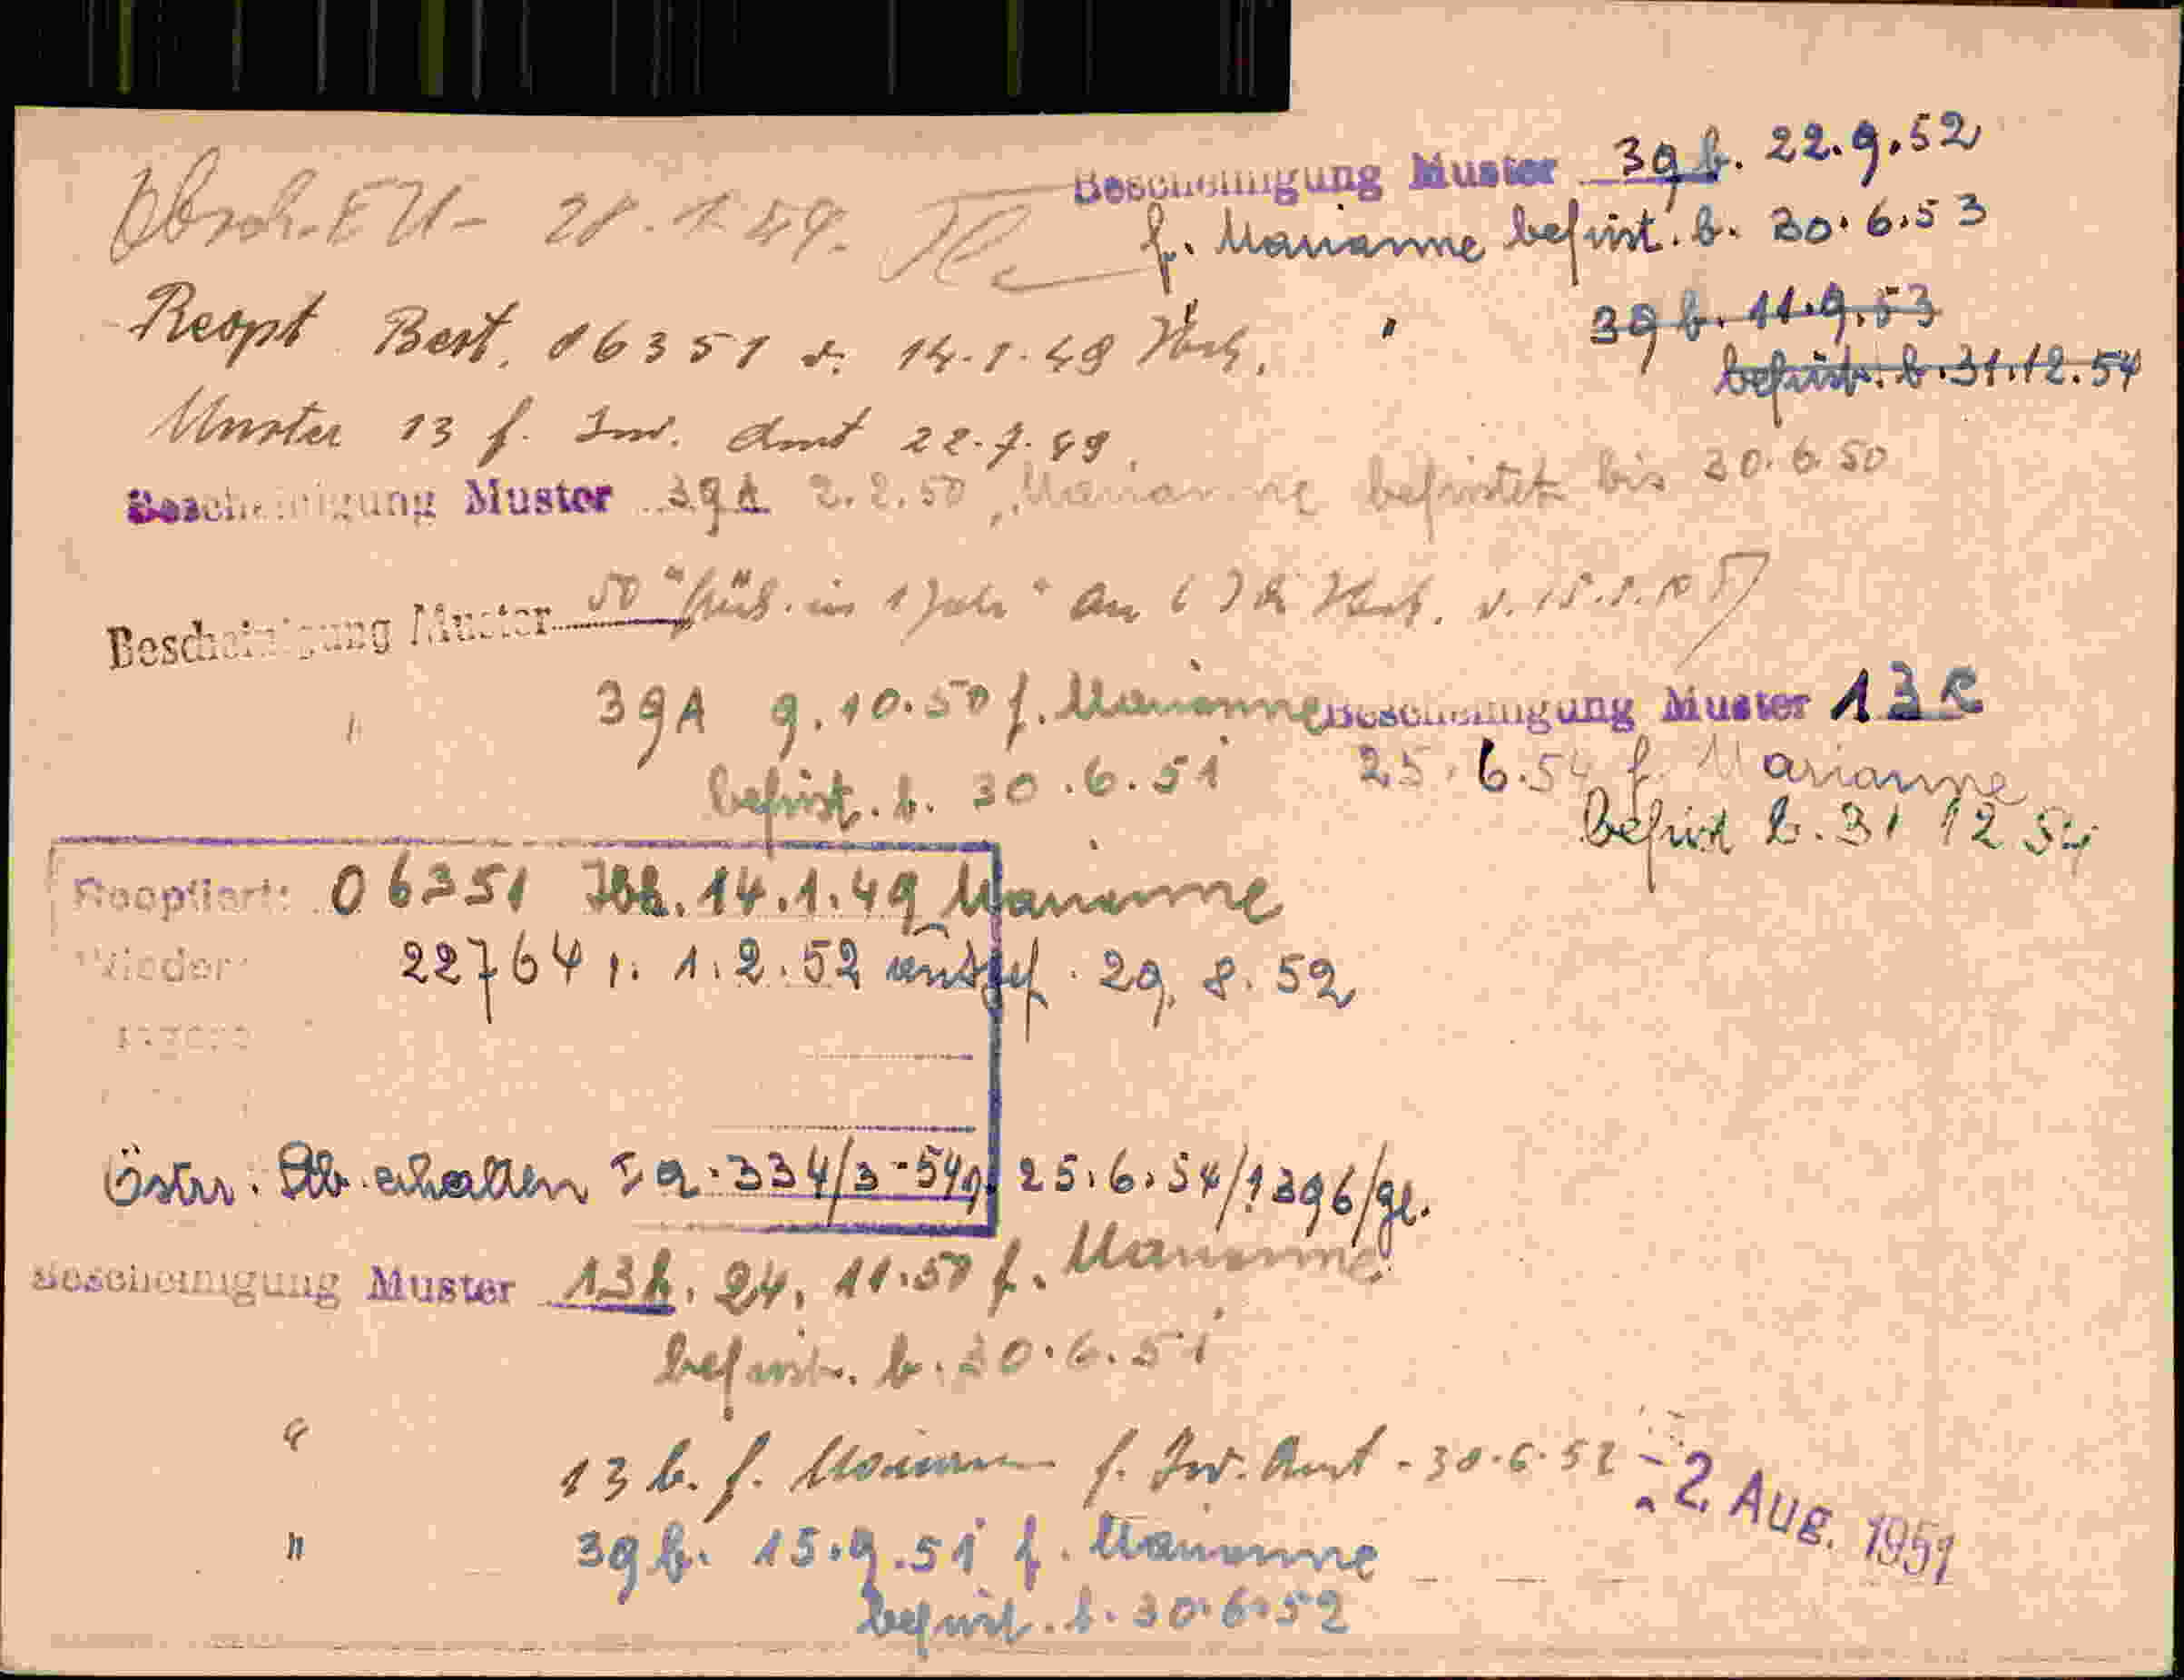 Bescheinigung Muster 39 b. 22.9.52
f. Marianne befrist. b. 30.6.53
" 39 b. 11.9.53
befrist. b. 31.12.54
Absch. EU- 28.1.49.
Reopt Best. 06351 v. 14.1.49 Ibk.
Muster 13 f. Inv. Amt 22.7.49.
Bescheinigung Muster 39A 2.2.50 Marianne befristet bis 30.6.50
Bescheinigung Muster 50 "gült. ein 1 Jahr"
" 39A 9.10.50 f. Marianne
befrist. b. 30.6.51
Bescheinigung Muster 13 R
25.6.54 f. Marianne
befrist b. 31 12 54
Reoptiert: 06351 Ibk. 14.1.49 Marianne
Wieder 22764 v. 1.2.52 29.8.52
Östr. Stb. erhalten I a-334/3-54 25.6.54/1396/gl.
Bescheinigung Muster 13 b. 24.11.50 f. Marianne
befrist. b. 30.6.51
" 13 b. f. Marianne f. Inv. Amt - 30.6.52 - 2. Aug. 1951
" 39 b. 15.9.51 f. Marianne
befrist. b. 30.6.52